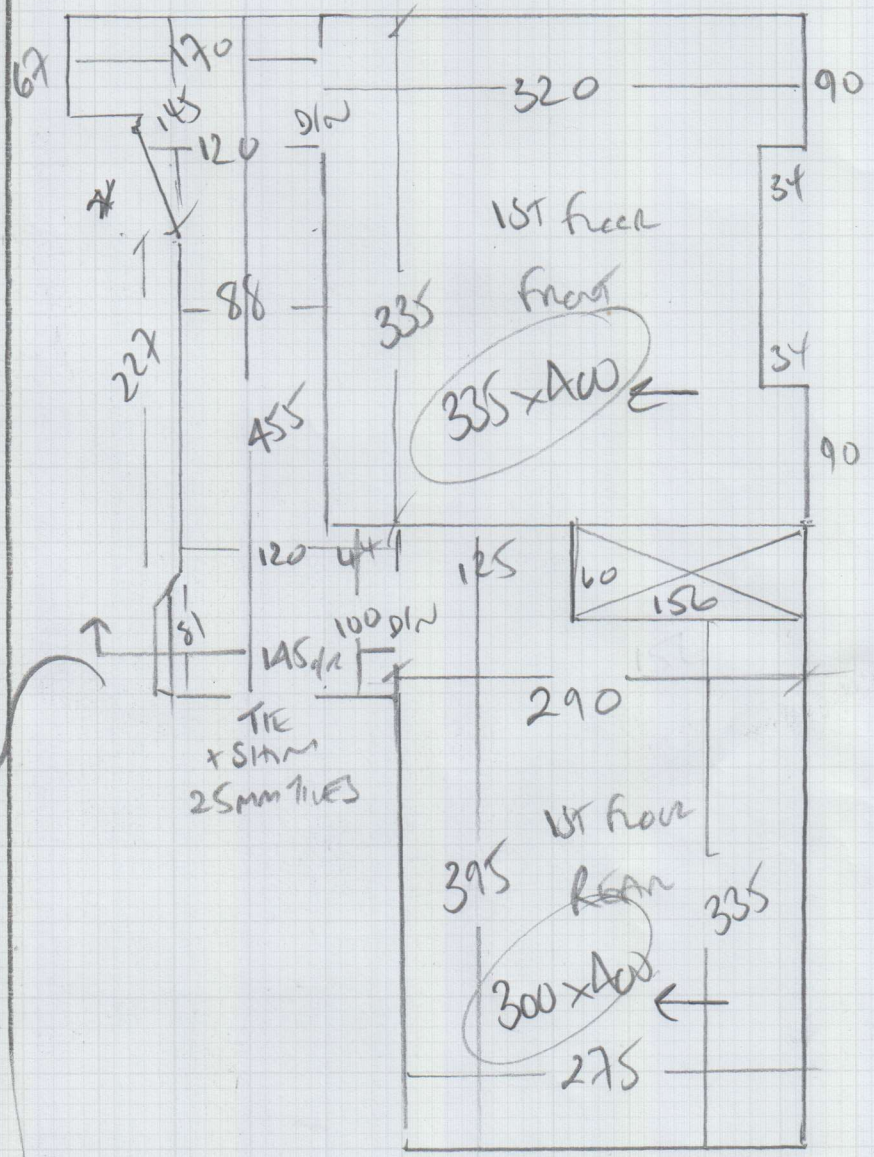 67
170
320
90
145
120
D/N
34
1ST FLOOR
FRONT
88
335
227
335x400
34
455
90
120
44
125
60
156
81
145
100
D/N
290
TIE
+ SHIM
25MM TILES
1ST FLOUR
REAR
395
335
300x400
275